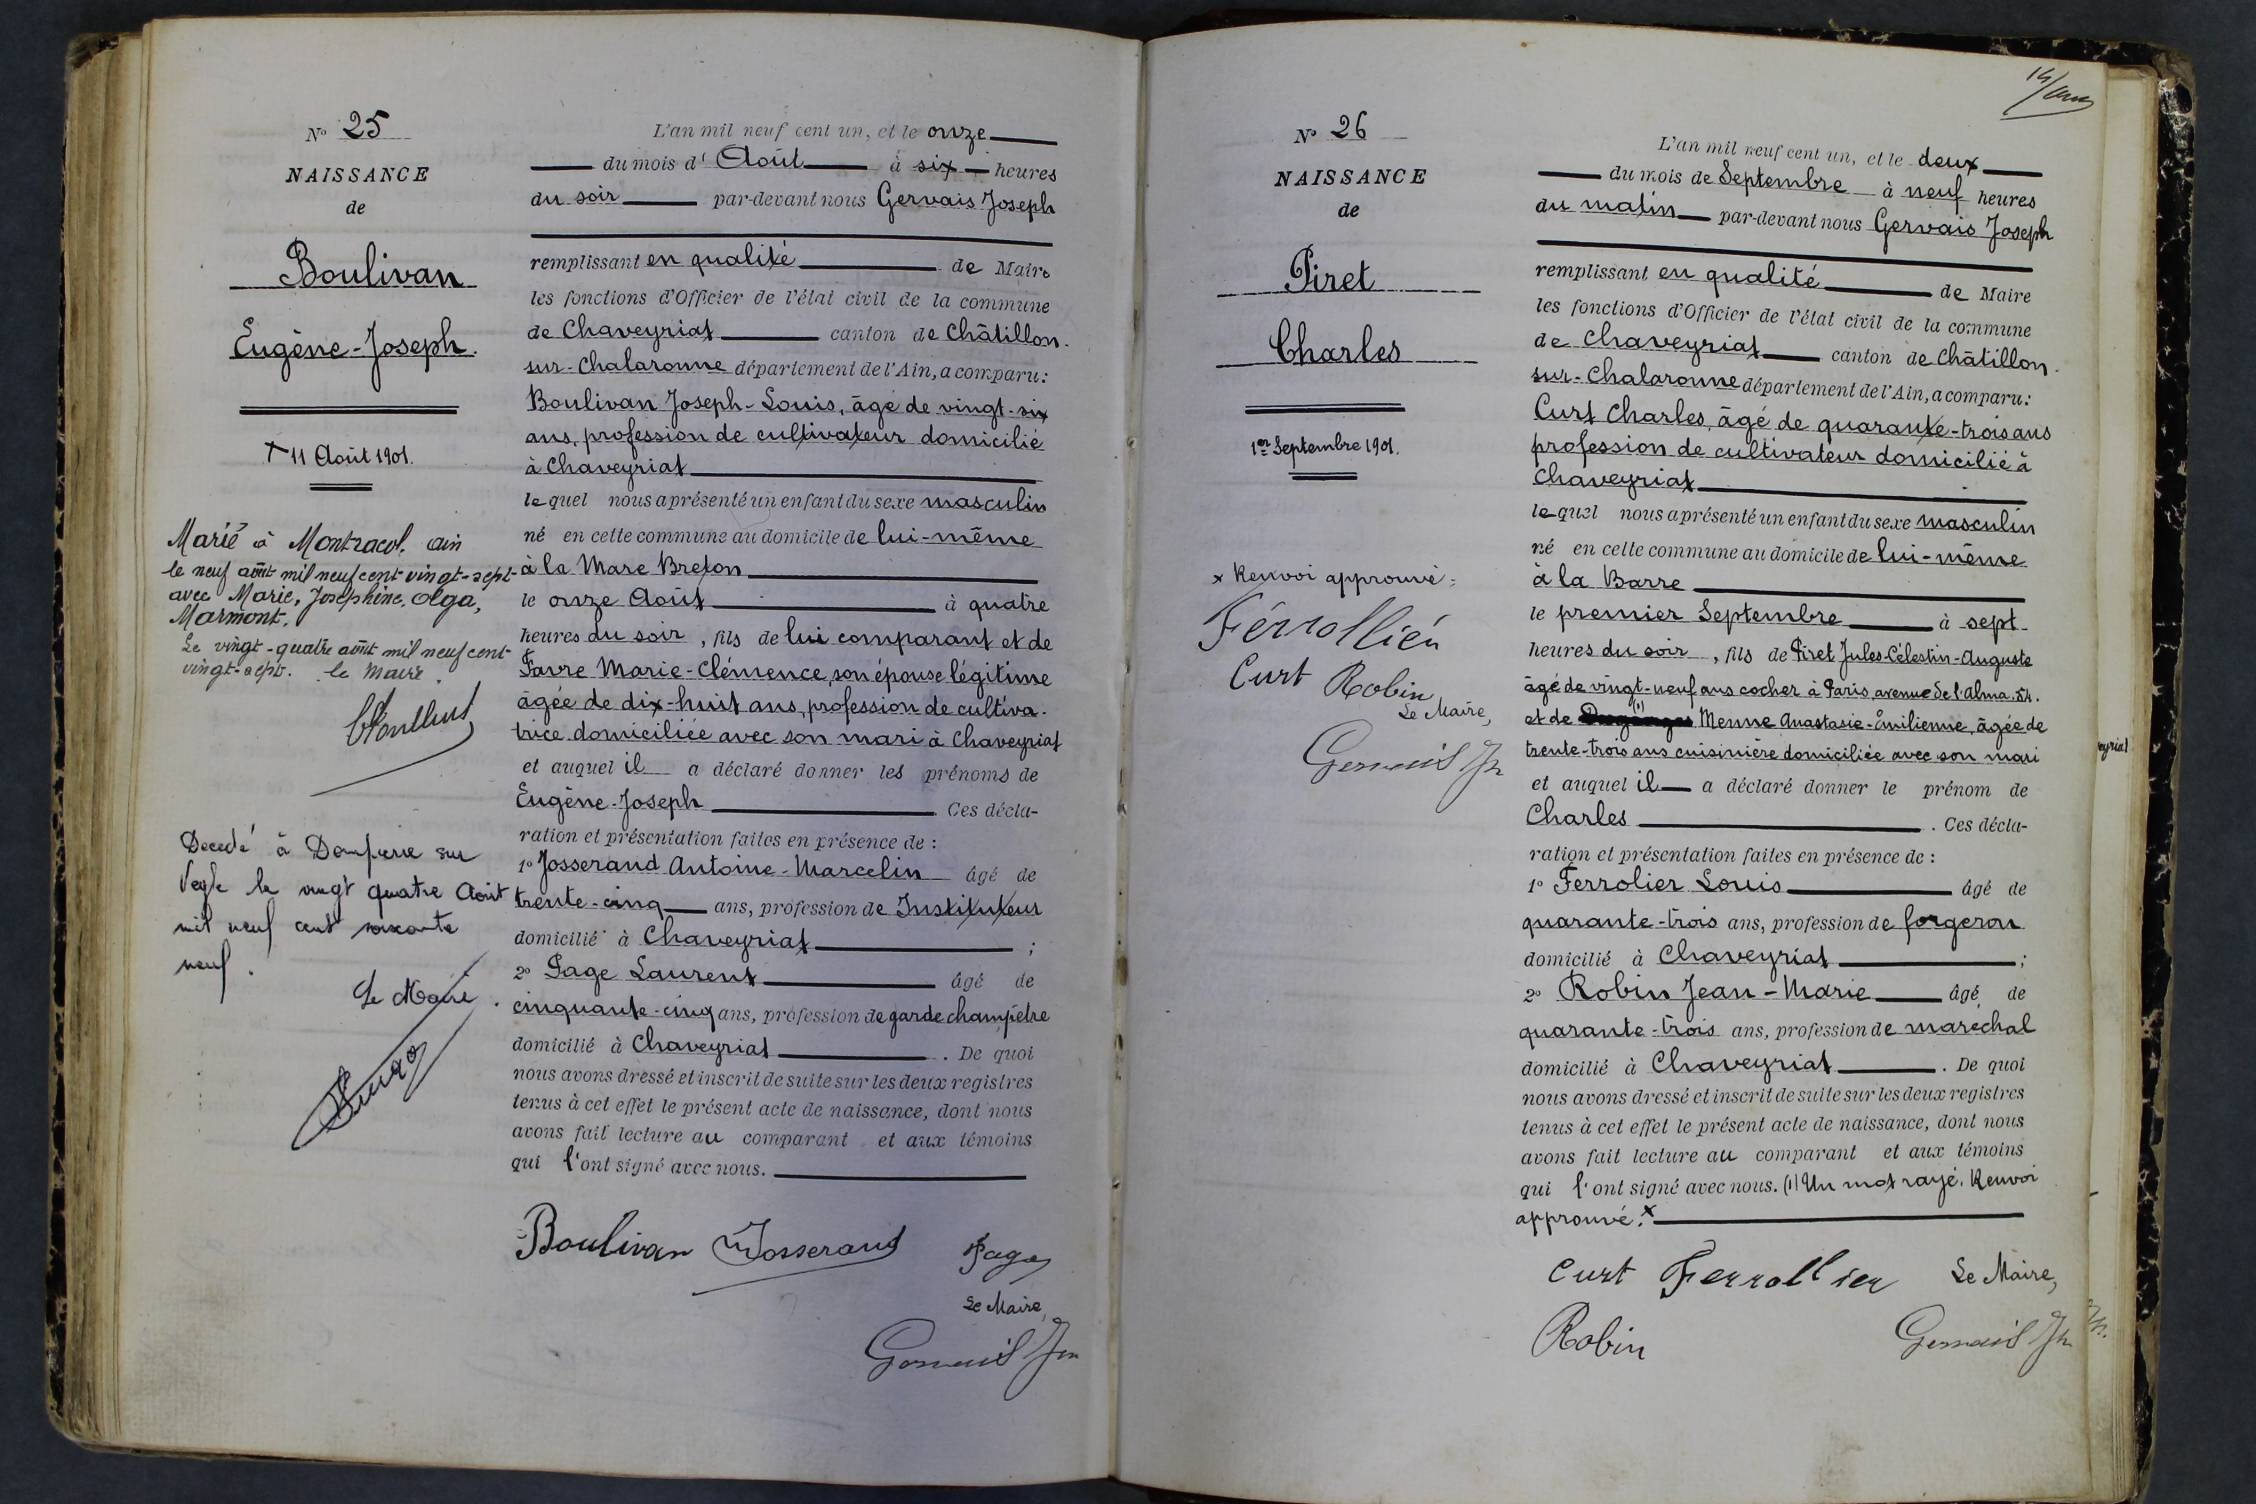 N° 25
NAISSANCE
de
Boulivan
Eugène-Joseph.
+ 11 Août 1901.
Marié à Montracol, ain
le neuf août mil neuf cent vingt-sept
avec Marie, Joséphine, Olga,
Marmont.
Le vingt-quatre août mil neuf cent
vingt-sept. le Maire.
Decedé à Dompierre sur
Veyle le vingt quatre Aout
mil neuf cent soixante
neuf.
Le Maire.
L'an mil neuf cent un, et le onze
du mois d' Août à six heures
du soir par-devant nous Gervais Joseph
remplissant en qualité de Maire
les fonctions d'Officier de l'état civil de la commune
de Chaveyriat canton de Châtillon-
sur-Chalaronne département de l'Ain, a comparu:
Boulivan Joseph-Louis, âgé de vingt-six
ans, profession de cultivateur domicilié
à Chaveyriat
lequel nous a présenté un enfant du sexe masculin
né en cette commune au domicile de lui-même
à la Mare Breton
le onze Août à quatre
heures du soir, fils de lui comparant et de
Favre Marie-Clémence, son épouse légitime
âgée de dix-huit ans, profession de cultiva-
trice domiciliée avec son mari à Chaveyriat
et auquel il a déclaré donner les prénoms de
Eugène-Joseph. Ces décla-
ration et présentation faites en présence de :
1° Josserand Antoine-Marcelin âgé de
trente-cinq ans, profession de Instituteur
domicilié à Chaveyriat ;
2° Page Laurent âgé de
cinquante-cinq ans, profession de garde champêtre
domicilié à Chaveyriat. De quoi
nous avons dressé et inscrit de suite sur les deux registres
tenus à cet effet le présent acte de naissance, dont nous
avons fait lecture au comparant et aux témoins
qui l'ont signé avec nous.
Boulivan Josserand Page
Le Maire,
Gervais Jh
14/
N° 26
NAISSANCE
de
Piret
Charles
1er Septembre 1901.
x Renvoi approuvé:
Férrolliér
Curt Robin
Le Maire,
Gervais Jh
L'an mil neuf cent un, et le deux
du mois de Septembre à neuf heures
du matin par-devant nous Gervais Joseph
remplissant en qualité de Maire
les fonctions d'Officier de l'état civil de la commune
de Chaveyriat canton de Châtillon-
sur-Chalaronne département de l'Ain, a comparu:
Curt Charles, âgé de quarante-trois ans
profession de cultivateur domicilié à
Chaveyriat
lequel nous a présenté un enfant du sexe masculin
né en cette commune au domicile de lui-même
à la Barre
le premier Septembre à sept
heures du soir, fils de Piret Jules-Célestin-Auguste
âgé de vingt-neuf ans cocher à Paris, avenue de l'Alma. 54.
et de (1) Menne Anastasie-Emilienne, âgée de
trente-trois ans cuisinière domiciliée avec son mari
et auquel il a déclaré donner le prénom de
Charles. Ces décla-
ration et présentation faites en présence de :
1° Ferrolier Louis âgé de
quarante-trois ans, profession de forgeron
domicilié à Chaveyriat ;
2° Robin Jean-Marie âgé de
quarante-trois ans, profession de maréchal
domicilié à Chaveyriat. De quoi
nous avons dressé et inscrit de suite sur les deux registres
tenus à cet effet le présent acte de naissance, dont nous
avons fait lecture au comparant et aux témoins
qui l'ont signé avec nous. (1) Un mot rayé. Renvoi
approuvé. x
Curt Ferrollier Le Maire,
Robin Gervais Jh
eyriat